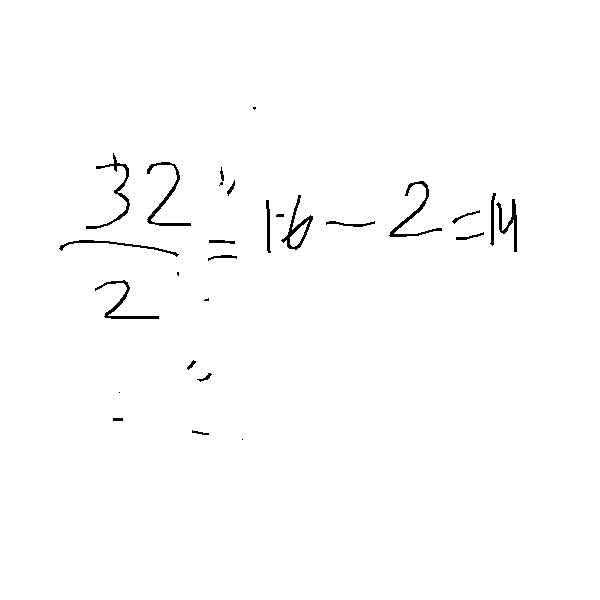 32/2 = 16 - 2 = 14